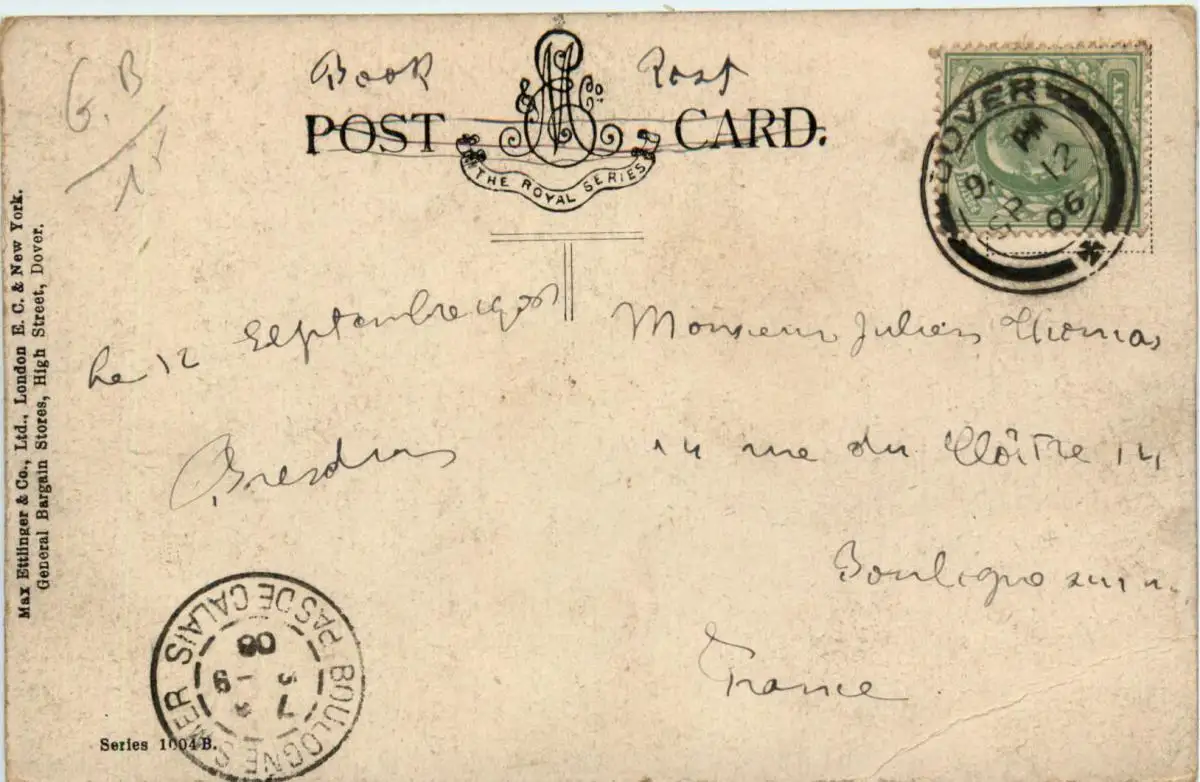 G. B
Book Post
POST CARD.
& Co.
THE ROYAL SERIES
DOVER
AM
9.
SP 12
06
Le 12 Septembre
Monsieur Julien Thomas
14 rue du Cloître 14
Boulogne sur m.
France
Max Ettlinger & Co., Ltd., London E. C. & New York.
General Bargain Stores, High Street, Dover.
BOULOGNE S MER PAS DE CALAIS
06
Series 1004 B.